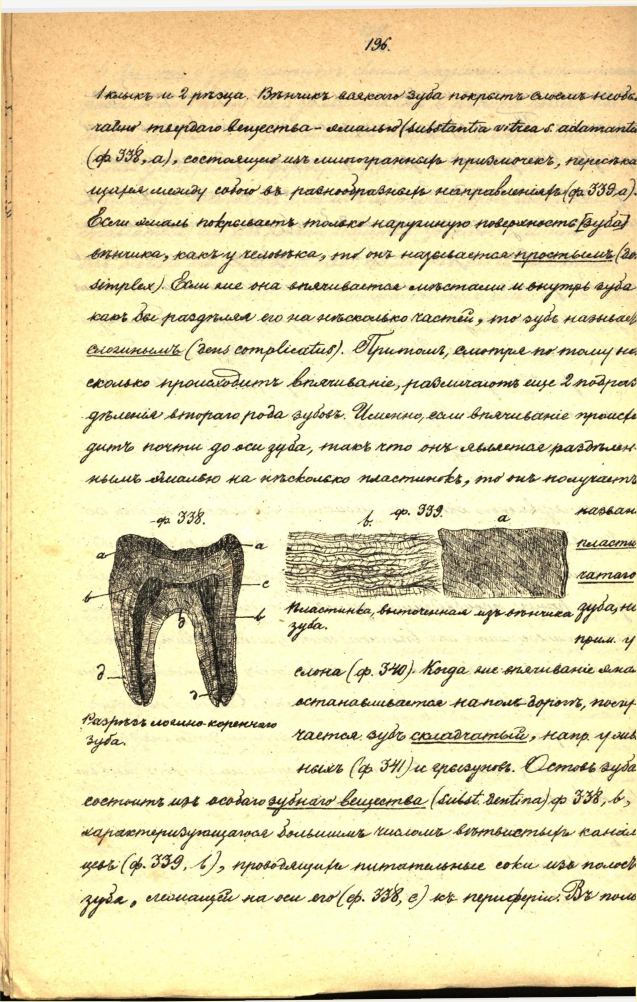 196.
1 клыкъ и 2 рѣзца. Вѣнчикъ всякаго зуба покрытъ слоемъ необы
чайно твердаго вещества – эмалью (substantia vitrea s. adamanti
(ф 338, а), состоящею изъ многогранныхъ призмочекъ, пересѣка
щихся между собою въ разнообразныхъ направленіяхъ (ф 339 а).
Если эмаль покрываетъ только наружную поверхность [зуба]
вѣнчика, какъ у человѣка, то онъ называется простымъ (den
simplex). Если же она впячивается мѣстами и внутрь зуба
какъ бы раздѣляя его на нѣсколько частей, то зубъ называе
сложнымъ (dens complicatus). Притомъ, смотря по тому на
сколько происходитъ впячиваніе, различаютъ еще 2 подраз
дѣленія втораго рода зубовъ. Именно, если впячиваніе происхо
дитъ почти до оси зуба, такъ что онъ является раздѣлен-
нымъ эмалью на нѣсколько пластинокъ, то онъ получаетъ
назван
пласти
чатаго
зуба, на
прим. у
ф 338.
а
а
в
с
в
б
д
д
Разрѣзъ ложно-кореннаго
зуба.
ф. 339.
в.
а
Пластинка, выточенная изъ вѣнчика
зуба.
слона (ф. 340). Когда же впячиваніе эма
останавливается на полъ-дорогѣ, полу
чается зубъ складчатый, напр. у жв
ныхъ (ф. 341) и грызуновъ. Остовъ зуба
состоитъ изъ особаго зубнаго вещества (subst. dentina) ф 338, в,
характеризующагося большимъ числомъ вѣтвистыхъ канал
цевъ (ф. 339, в), проводящихъ питательные соки изъ полос
зуба, лежащей на оси его (ф. 338, с) къ периферіи. Въ поло